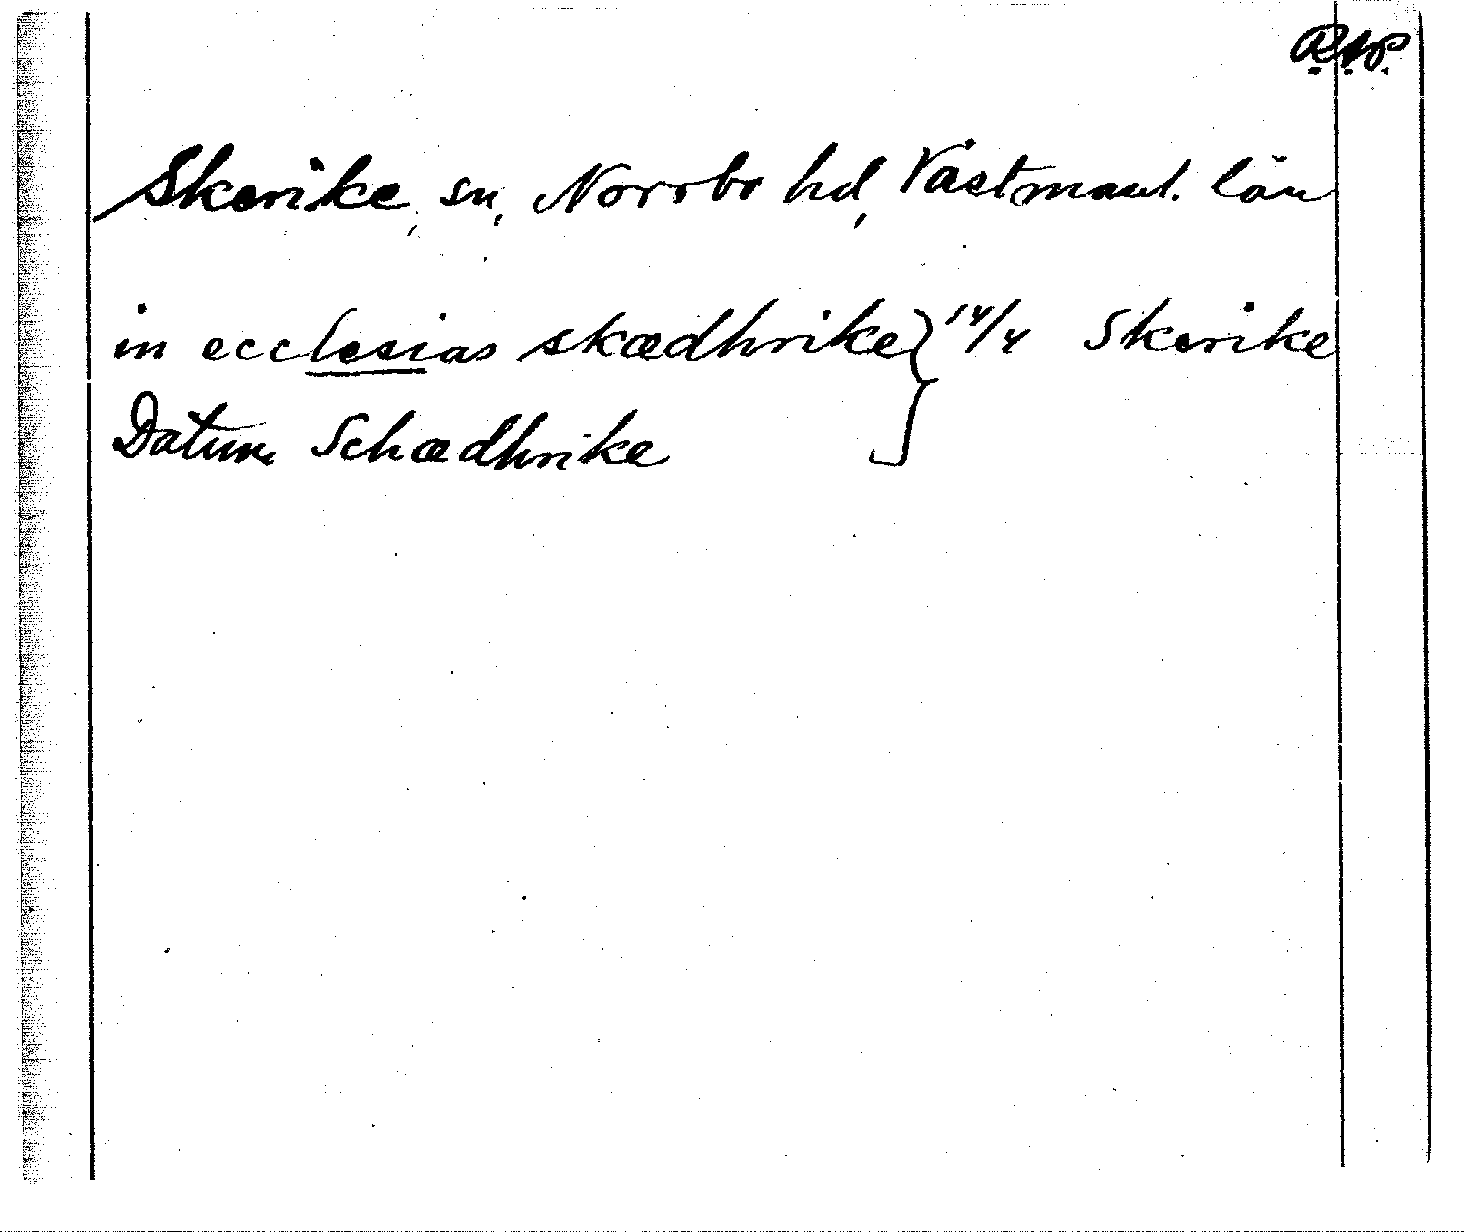 R.A.P.
Skerike, sn, Norrbo hd, Västmanl. län
in ecclesias skædhrike } 14/4 Skerike
Datum Schædhrike